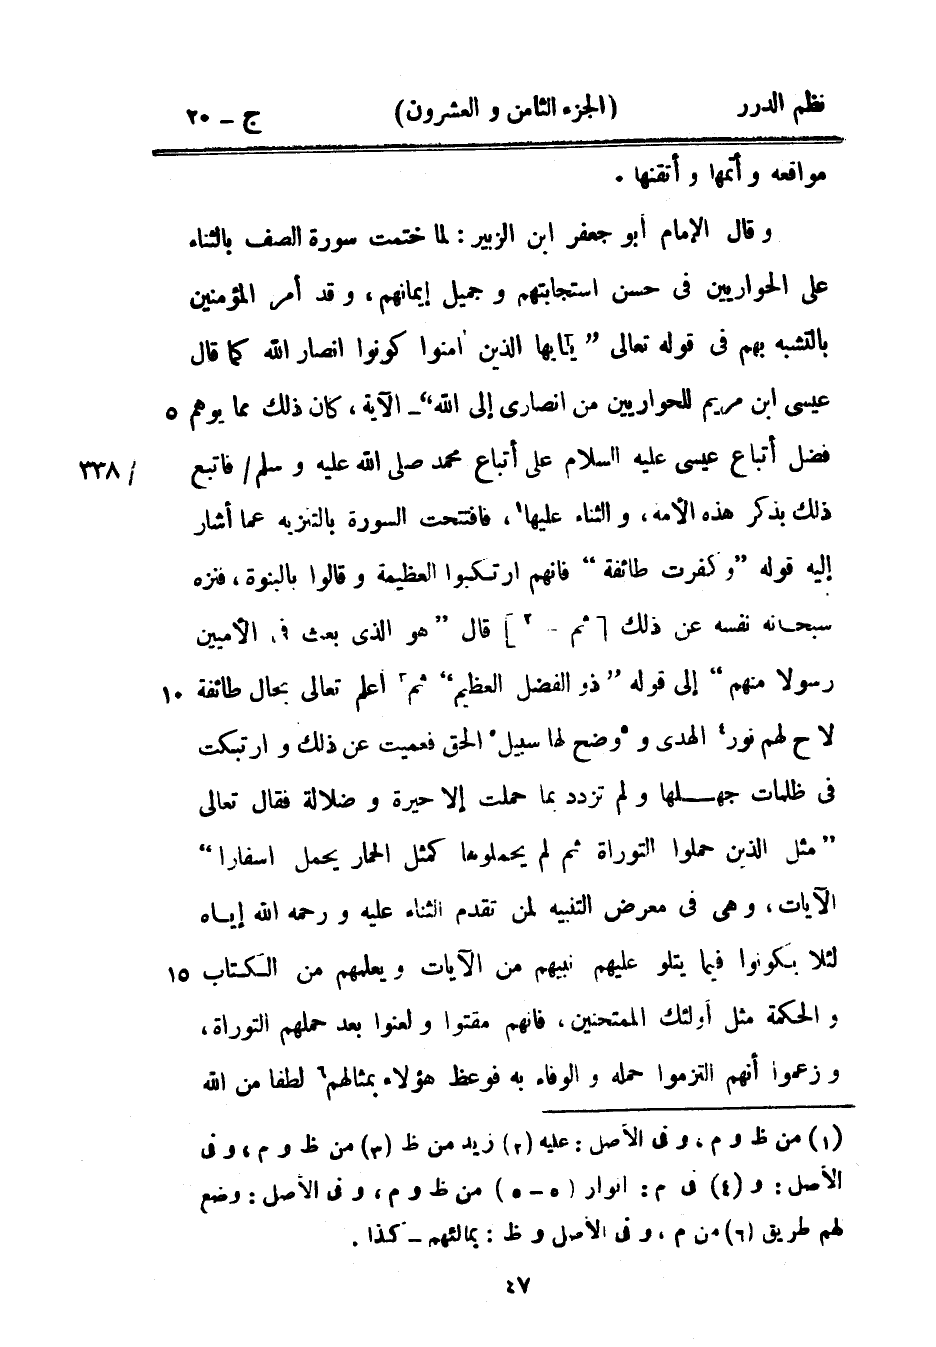 نظم الدرر (الجزء الثامن و العشرون) ج – ٢٠
مواقعه و أتمها و أتقنها .
و قال الإمام أبو جعفر ابن الزبير : لما ختمت سورة الصف بالثناء
على الحواريين فى حسن استجابتهم و جميل إيمانهم ، و قد أمر المؤمنين
بالتشبه بهم فى قوله تعالى ” يٰآيها الذين اٰمنوا كونوا انصار الله كما قال
عيسى ابن مريم للحواريين من انصارى إلى الله “ ـ الآية ، كان ذلك مما يوهم ٥
فضل أتباع عيسى عليه السلام على أتباع محمد صلى الله عليه و سلم / فاتبع / ٣٣٨
ذلك بذكر هذه الأمة ، و الثناء عليها١ ، فافتتحت السورة بالتنزيه عما أشار
إليه قوله ”و كفرت طائفة “ فانهم ارتكبوا العظيمة و قالوا بالبنوة ، فنزه
سبحانه نفسه عن ذلك [ ثم - ٢ ] قال ” هو الذى بعث فى الأميين
رسولا منهم “ إلى قوله ” ذو الفضل العظيم “ ثم٣ أعلم تعالى بحال طائفة ١٠
لاح لهم نور٤ الهدى و ٥وضح لها سبيل٥ الحق فعميت عن ذلك و ارتبكت
فى ظلمات جهلها و لم تزدد بما حملت إلا حيرة و ضلالة فقال تعالى
” مثل الذين حملوا التوراة ثم لم يحملوها كمثل الحمار يحمل اسفارا “
الآيات ، و هى فى معرض التنبيه لمن تقدم الثناء عليه و رحمه الله إياه
لئلا يكونوا فيما يتلو عليهم نبيهم من الآيات و يعلمهم من الكتاب ١٥
و الحكمة مثل أولئك الممتحنين ، فانهم مقتوا و لعنوا بعد حملهم التوراة ،
و زعموا أنهم التزموا حمله و الوفاء به فوعظ هؤلاء بمثالهم٦ لطفا من الله
(١) من ظ و م ، و فى الأصل : عليه (٢) زيد من ظ (٣) من ظ و م ، و فى
الأصل : و (٤) فى م : انوار (٥ – ٥) من ظ و م ، و فى الأصل : وضع
لهم طريق (٦) من م ، و فى الأصل و ظ : بمالئهم – كذا .
٤٧